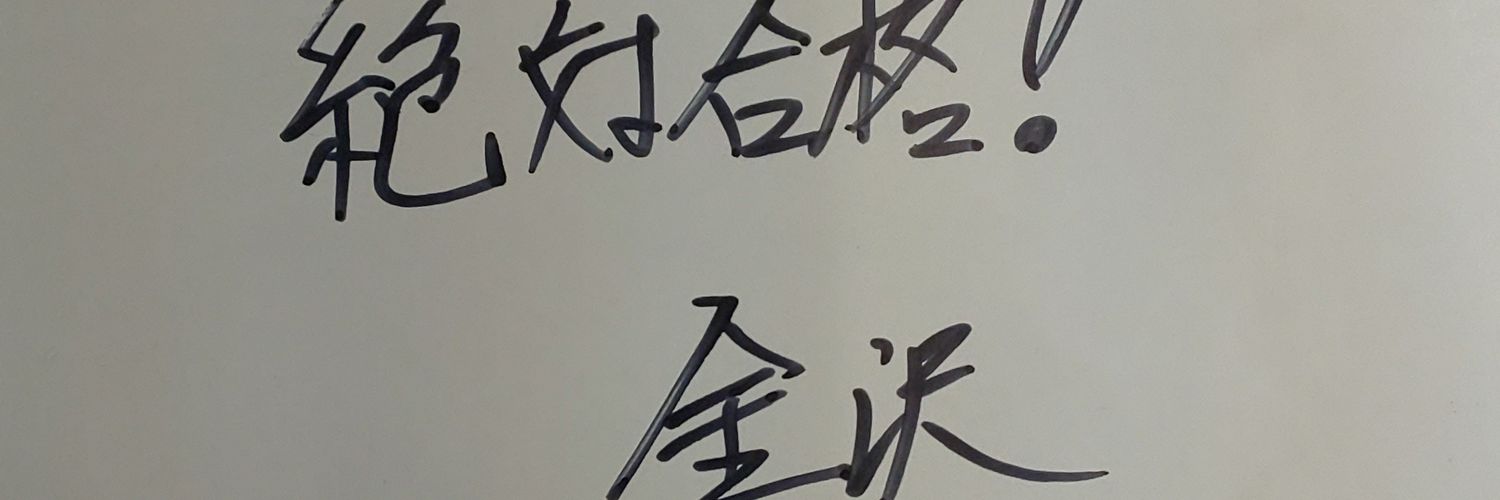 絶対合格！
金沢